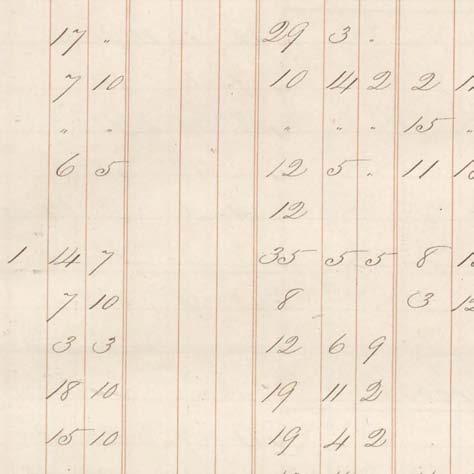 17 " 29 3 "
7 10 10 14 2 2
" " " " " 15 "
6 5 12 5 " 11
12
1 14 7 35 5 5 8
7 10 8 3 12
3 3 12 6 9
18 10 19 11 2
15 10 19 4 2